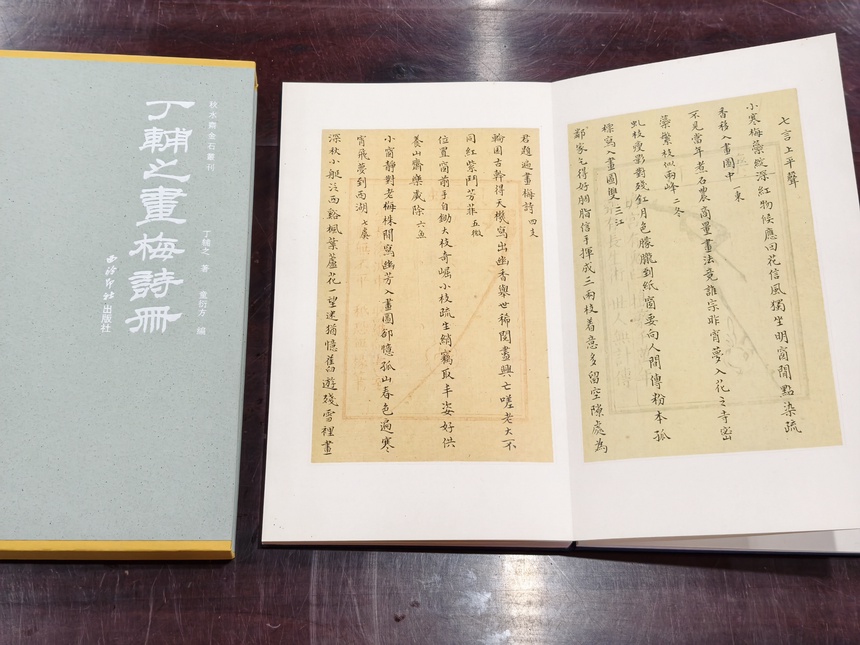 秋水齋金石叢刊
丁輔之畫梅詩冊
丁輔之 著 童衍方 編
西泠印社出版社
七言上平聲
小寒梅蕚綻深紅物候應回花信風獨坐明窗閒點染疏
香移入畫圖中 一東
不見當年煮石農商量畫法竟誰宗昨宵夢入花之寺密
蕚繁枝似兩峰 二冬
虬枝瘦影對殘釭月色朦朧到紙窗要向人間傳粉本孤
標寫入畫圖雙 三江
鄰家乞得好胭脂信手揮成三兩枝着意多留空隙處為
君題遍畫梅詩 四支
輪囷古幹得天機寫出幽香舉世稀閱盡興亡嗟老大不
同紅紫鬥芳菲 五微
位置窗前手自鋤大枝奇崛小枝疏生綃竊取丰姿好供
養山齋樂歲除 六魚
小窗靜對老梅株閒寫幽芳入畫圖卻憶孤山春色遍寒
宵飛夢到西湖 七虞
深秋小艇泛西谿楓葉蘆花一望迷猶憶舊遊殘雪裡畫